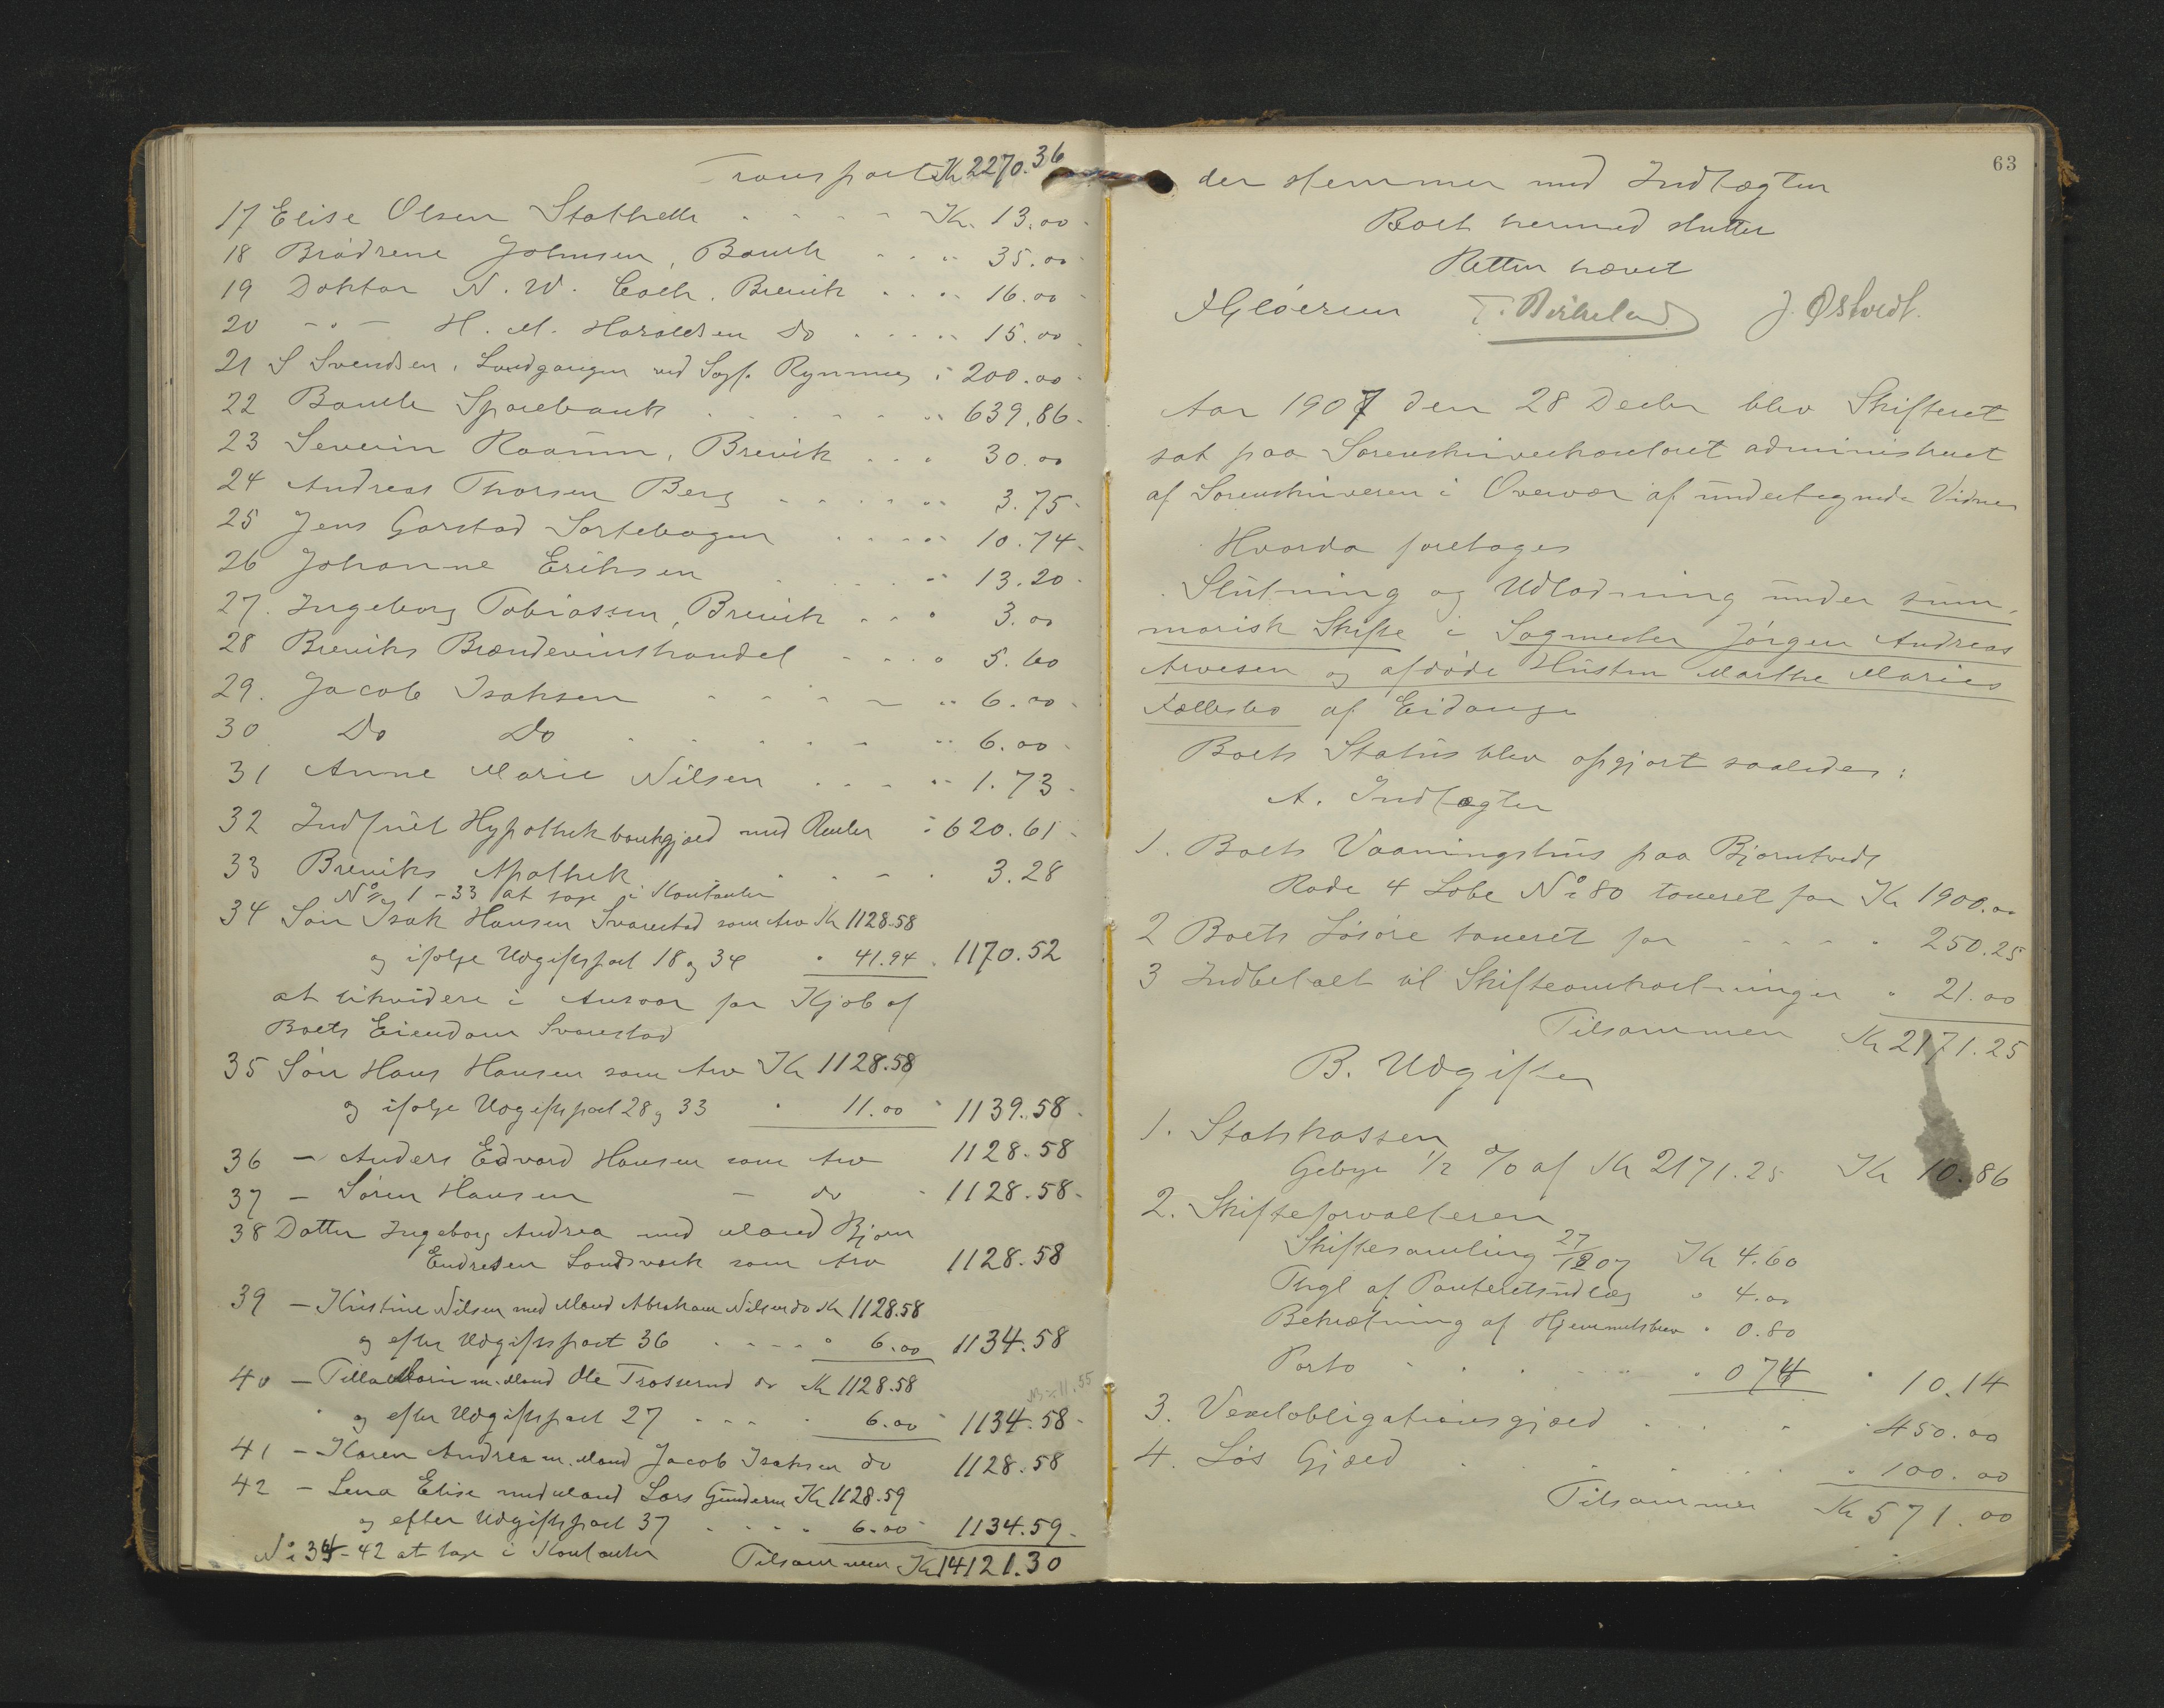 Transport Kr 2270.36
17 Elise Olsen Stathelle Kr. 13.00
18 Brødrene Johnsen, Bamle " 35.00
19 Doktor N. W. Coch, Brevik " 16.00
20 - " - H. M. Haraldsen Do " 15.00
21 S Svendsen, Landgangen ved Sagf. Rynning " 200.00
22 Bamle Sparebank " 639.86
23 Severin Raamun, Brevik " 30.00
24 Andreas Thorsen Berg " 3.75
25 Jens Garstad Sortebogen " 10.74
26 Johanne Eriksen " 13.20
27. Ingeborg Tobiassen, Brevik " 3.00
28 Breviks Brændevinshandel " 5.60
29. Jacob Isaksen " 6.00
30 Do Do " 6.00
31 Anne Marie Nilsen " 1.73
32 Indfriet Hypothekbankgjæld med Renter " 620.61
33 Breviks Apothek 3.28
No 1-33 at tage i Kontanter
34 Søn Isak Hansen Svarestad som Arv Kr 1128.58
og ifølge Udgiftspost 18 og 34 " 41.94 1170.52
at likvidere i Ansvar for Kjøb af
Boets Eiendom Svarestad
35 Søn Hans Hansen som Arv Kr 1128.58
og ifølge Udgiftspost 28 og 33 " 11.00 " 1139.58
36 - Anders Edvard Hansen som Arv 1128.58
37 - Søren Hansen - do 1128.58
38 Datter Ingeborg Andrea med Mand Bjørn
Endresen Landsverk som Arv 1128.58
39 - Kristine Nilsen med Mand Abraham Nilsen do Kr 1128.58
og efter Udgiftspost 36 " 6.00 1134.58
40 - Tilla Marie m. Mand Ole Trosserud do Kr 1128.58
11.55
og efter Udgiftspost 27 6.00 1134.58
41 - Karen Andrea m. Mand Jacob Isaksen do 1128.58
42 - Lena Elise med Mand Lars Gundersen Kr 1128.59
og efter Udgiftspost 37 6.00 1134.59
No 34-42 at tage i Kontanter Tilsammen Kr 14121.30
63
der stemmer med Indtægten
Boet hermed slutter
Retten hævet
F Gløersen T. Birkeland J. Østvedt.
Aar 1907 den 28 Decbr blev Skifteret
sat paa Sorenskriverkontoret administreret
af Sorenskriveren i Overvær af undertegnede Vidner
Hvorda foretages
Slutning og Udlodning under sum-
marisk Skifte i Sagmester Jørgen Andreas
Arvesen og afdøde Hustru Marthe Maries
Fællesbo af Eidanger
Boets Status blev opgjort saaledes:
A. Indtægter
1. Boets Vaaningshus paa Bjørntvedt
Rode 4 Løbe No 80 taxeret for Kr 1900.00
2 Boets Løsøre taxeret for " 250.25
3 Indbetalt til Skifteomkostninger " 21.00
Tilsammen Kr 2171.25
B. Udgifter
1. Statskassen
Gebyr 1/2 % af Kr 2171.25 Kr 10.86
2. Skifteforvalteren
Skiftesamling 27/12 07 Kr 4.60
Thgl af Panteretsudlæg " 4.00
Bekræftning af Hjemmelsbrev " 0.80
Porto " 0 74 " 10.14
3. Vexelobligationsgjæld " 450.00
4. Løs Gjæld " 100.00
Tilsammen Kr 571.00